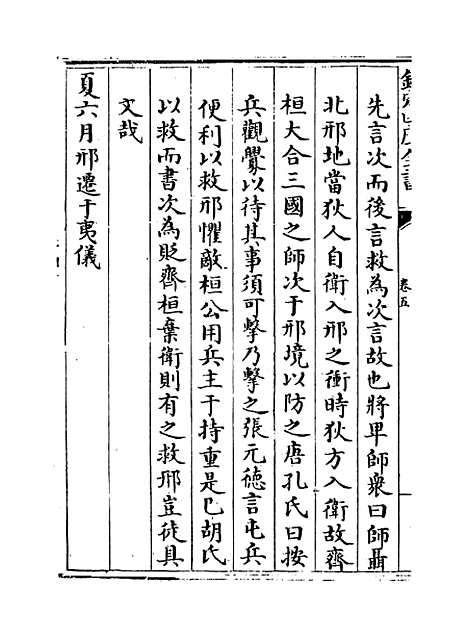 欽定四庫全書
卷五
先言次而後言救為次言故也將卑師衆曰師聶
北邢地當狄人自衛入邢之衝時狄方入衛故齊
桓大合三國之師次于邢境以防之唐孔氏曰按
兵觀釁以待其事須可擊乃擊之張元德言屯兵
便利以救邢懼敵桓公用兵主于持重是已胡氏
以救而書次為貶齊桓棄衛則有之救邢豈徒具
文哉
夏六月邢遷于夷儀